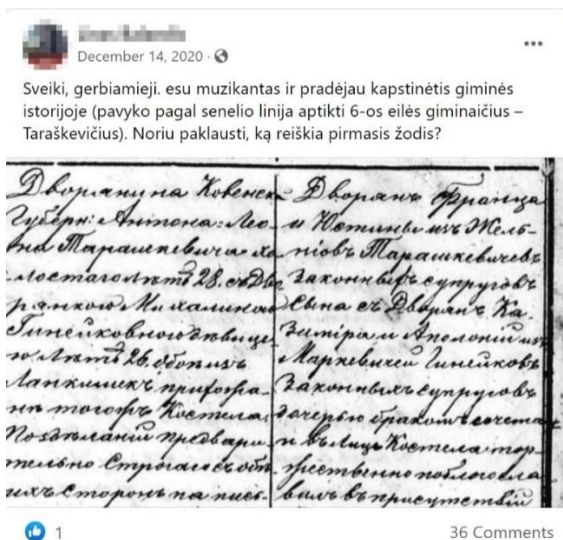 December 14, 2020
Sveiki, gerbiamieji. esu muzikantas ir pradėjau kapstinėtis giminės
istorijoje (pavyko pagal senelio linija aptikti 6-os eilės giminaičius –
Taraškevičius). Noriu paklausti, ką reiškia pirmasis žodis?
Дворянина Ковенск-
Губерн: Антона-Лео-
на Тарашкевича хо-
лостаго летъ 28. съ Дво
рянкою Михалиною
Гинейковною девице-
ю летъ 26. обоихъ
прихожа-
нъ тогожъ Костела.
предвари-
тельно строгаго съ обо
ихъ сторонъ на пись-
Дворянъ Франца
и Юстины изъ
Тарашкевичевъ
законныхъ супруговъ
сына съ Дворянъ Ка-
зиміра и Аполоніи изъ
Маркевичей Гинейковъ
законныхъ супруговъ
дочерью бракомъ сочета
и въ Лицѣ Костела тор-
жественно поблагосла
вилъ въ присутствіи
1
36 Comments